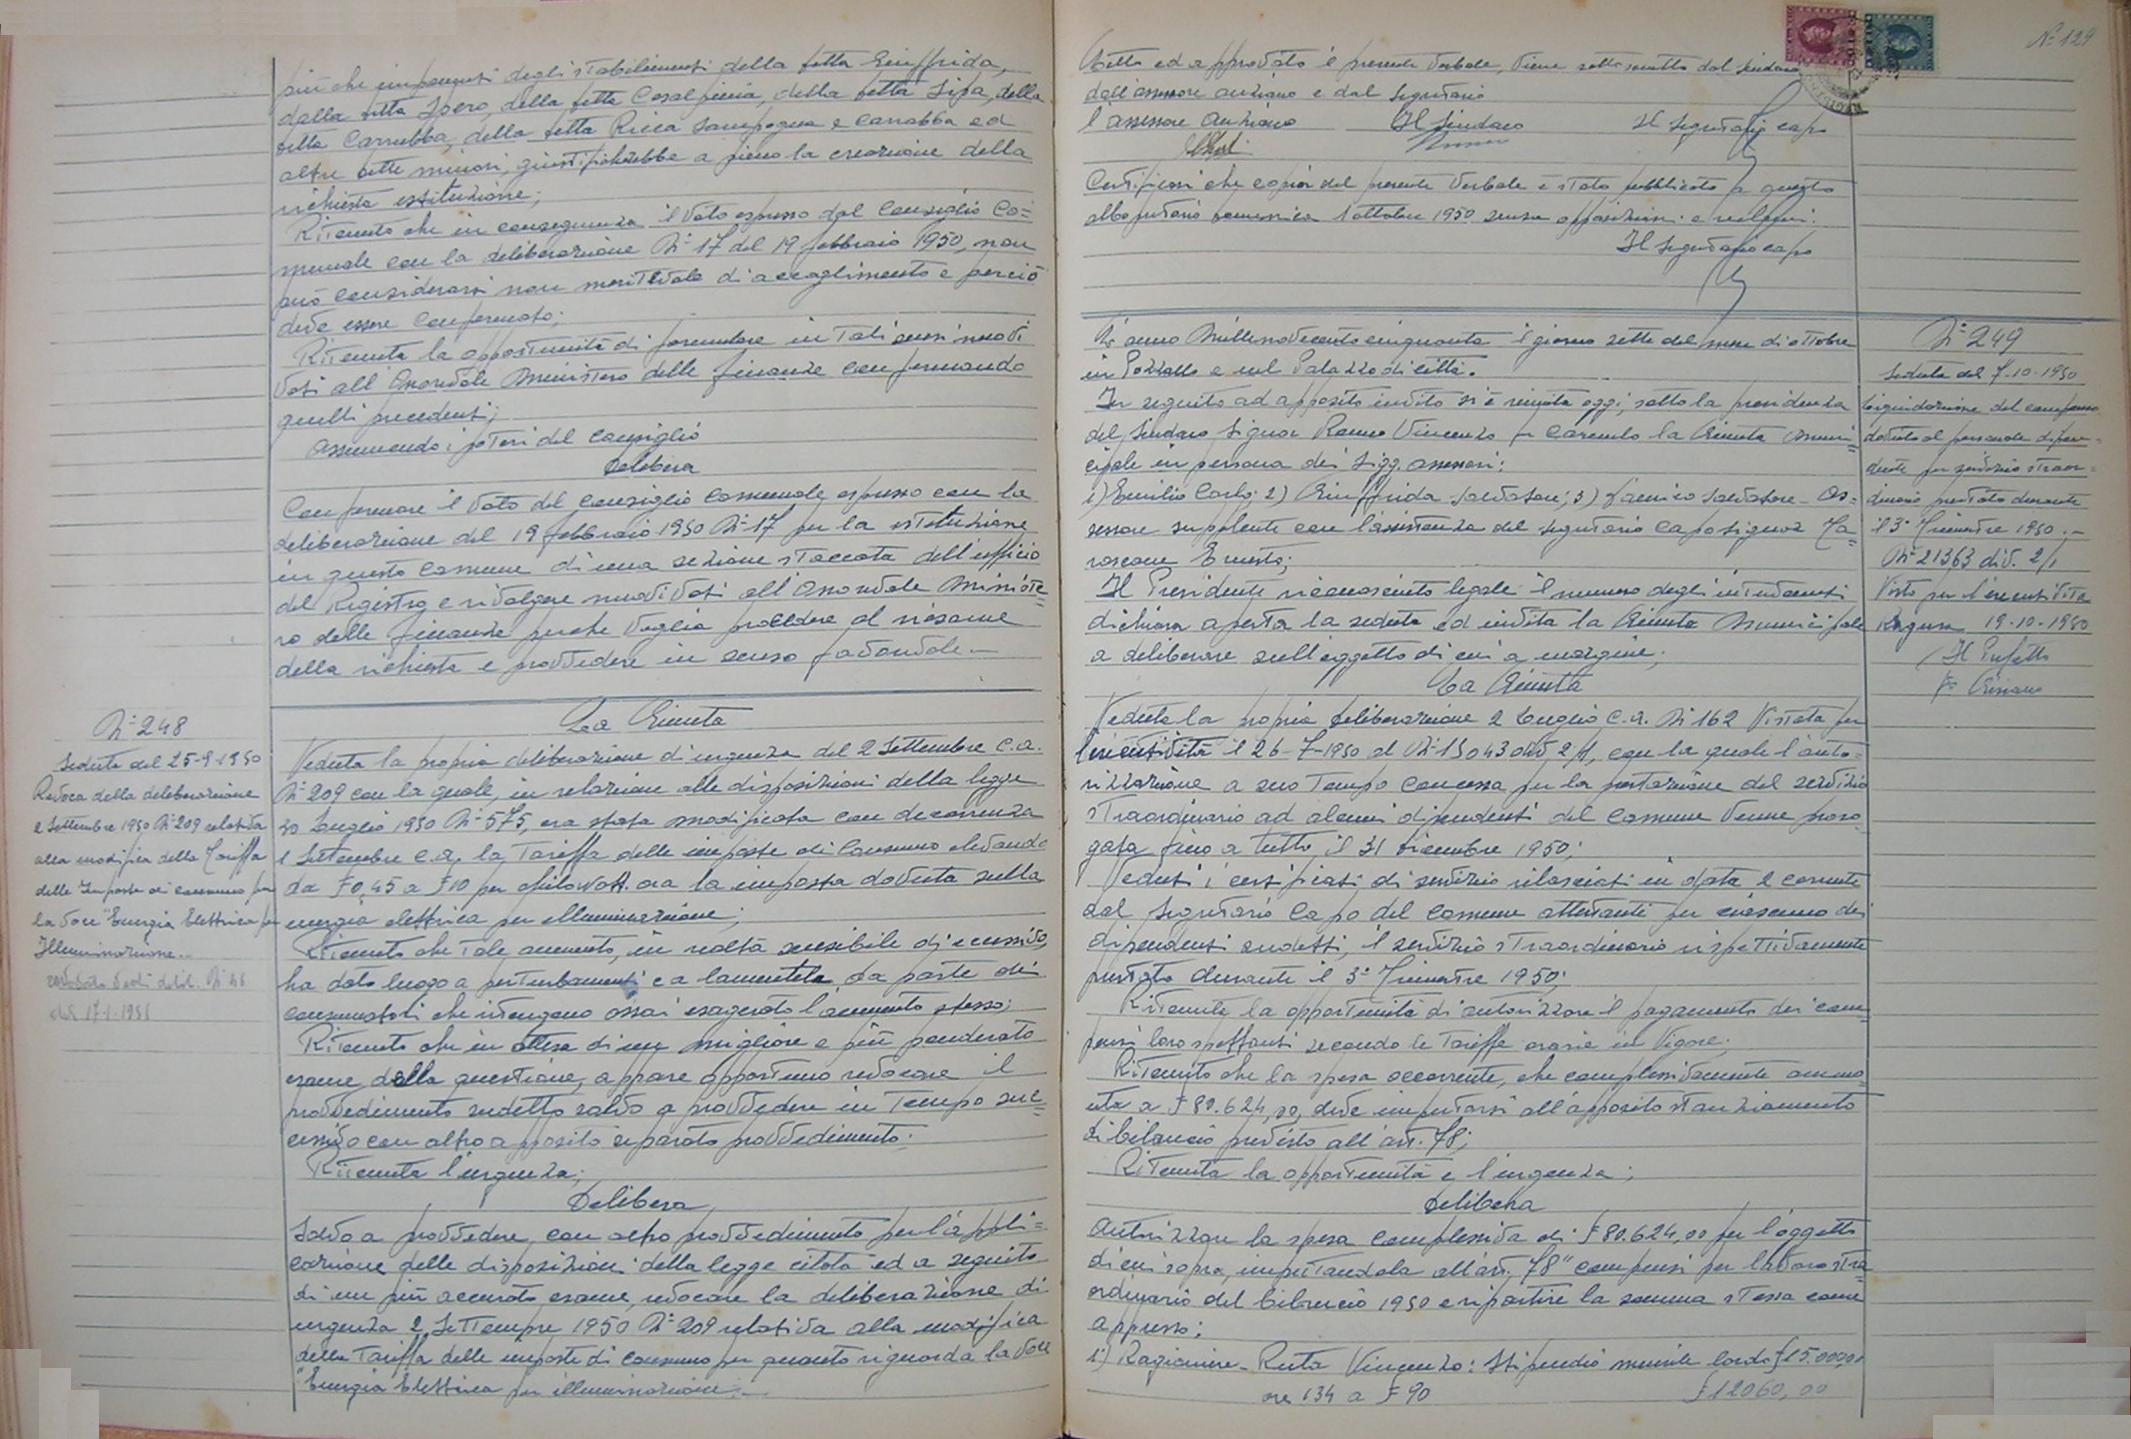 più che imponenti degli stabilimenti della ditta Giuffrida,
dalla ditta Spero, della ditta Cesalpinia, della ditta Sipa, della
ditta Carrubba, della ditta Ricca Sampogna e Carrabba ed
altre ditte minori, giustificherebbe a pieno la creazione della
richiesta istituzione;
Ritenuto che in conseguenza il voto espresso dal Consiglio Co=
munale con la deliberazione N° 17 del 19 febbraio 1950, non
può considerarsi non meritevole di accoglimento e perciò
deve essere confermato;
Ritenuta la opportunità di formulare in tali sensi nuovi
voti all'Onorevole Ministero delle Finanze confermando
quelli precedenti;
Assumendo i poteri del Consiglio
Delibera
Confermare il voto del Consiglio Comunale espresso con la
deliberazione del 19 febbraio 1950 N° 17 per la istituzione
in questo Comune di una sezione staccata dell'ufficio
del Registro e rivolgere nuovi voti all'Onorevole Ministe=
ro delle Finanze perché voglia procedere al riesame
della richiesta e provvedere in senso favorevole.—
N° 248
Seduta del 25-9-1950
Revoca della deliberazione
2 Settembre 1950 N° 209 relativa
alla modifica della Tariffa
delle Imposte di consumo per
la voce "Energia Elettrica per
Illuminazione..
revocata vedi delib. N° 46
del 17-1-1951
La Giunta
Veduta la propria deliberazione di urgenza del 2 Settembre c.a.
N° 209 con la quale, in relazione alle disposizioni della legge
30 Luglio 1950 N° 575, era stata modificata con decorrenza
1 Settembre c.a. la Tariffa delle imposte di Consumo elevando
da £ 0,45 a £ 10 per chilowatt. ora la imposta dovuta sulla
energia elettrica per illuminazione;
Ritenuto che tale aumento, in realtà sensibile di eccessivo,
ha dato luogo a perturbamenti e a lamentele da parte dei
consumatori che ritengono assai esagerato l'aumento stesso;
Ritenuto che in attesa di un migliore e più ponderato
esame della questione, appare opportuno revocare il
provvedimento sudetto salvo a provvedere in tempo suc=
cessivo con altro apposito separato provvedimento;
Ritenuta l'urgenza;
Delibera
Salvo a provvedere con altro provvedimento per l'appli=
cazione delle disposizioni della legge citata ed a seguito
di un più accurato esame, revocare la deliberazione di
urgenza 2 Settembre 1950 N° 209 relativa alla modifica
della Tariffa delle imposte di consumo per quanto riguarda la voce
"Energia Elettrica per illuminazione.—
N° 129
Letto ed approvato il presente verbale, viene sottoscritto dal Sindaco
dall'assessore anziano e dal Segretario
l'assessore Anziano Il Sindaco Il Segretario capo
Certificasi che copia del presente verbale è stata pubblicata a questo
albo pretorio domenica 1 ottobre 1950 senza opposizioni e reclami.
Il Segretario capo
L'anno Millenovecentocinquanta il giorno sette del mese di ottobre
in Pozzallo e nel Palazzo di città.
In seguito ad apposito invito si è riunita oggi, sotto la presidenza
del Sindaco Signor Vincenzo fu Carmelo la Giunta Muni=
cipale in persona dei Sigg. assessori:
1) Emilio Carlo; 2) Giuffrida Salvatore; 3) Salvatore - As=
sessore supplente con l'assistenza del Segretario Capo Signor
Ernesto;
Il Presidente riconosciuto legale il numero degli intervenuti
dichiara aperta la seduta ed invita la Giunta Municipale
a deliberare sull'oggetto di cui a margine;
La Giunta
Veduta la propria deliberazione 2 Luglio c.a. N° 162 Vistata per
l'esecutività il 26-7-1950 al N° 15043 div 2/1, con la quale l'auto=
rizzazione a suo tempo concessa per la prestazione del servizio
straordinario ad alcuni dipendenti del Comune venne proro=
gata fino a tutto il 31 dicembre 1950;
Veduti i certificati di servizio rilasciati in data 2 corrente
dal Segretario Capo del Comune attestanti per ciascuno dei
dipendenti sudetti, il servizio straordinario rispettivamente
prestato durante il 3° Trimestre 1950;
Ritenuta la opportunità di autorizzare il pagamento dei com=
pensi loro spettanti secondo le Tariffe orarie in vigore;
Ritenuto che la spesa occorrente, che complessivamente ammo=
nta a £ 80.624,00, deve imputarsi all'apposito stanziamento
di bilancio previsto all'art. 78;
Ritenuta la opportunità e l'urgenza;
Delibera
Autorizzare la spesa complessiva di £ 80.624,00 per l'oggetto
di cui sopra, imputandola all'art. 78 "compensi per lavoro stra=
ordinario del bilancio 1950 e ripartire la somma stessa come
appresso:
1) Ragioniere - Ruta Vincenzo: Stipendio mensile lordo £ 15.000,00
ore 134 a £ 90 £ 12060,00
N° 249
Seduta del 7-10-1950
Liquidazione del compenso
dovuto al personale dipen=
dente per servizio straor=
dinario prestato durante
il 3° Trimestre 1950.—
N° 21363 div. 2/1
Visto per l'esecutività
Ragusa 19-10-1950
Il Prefetto